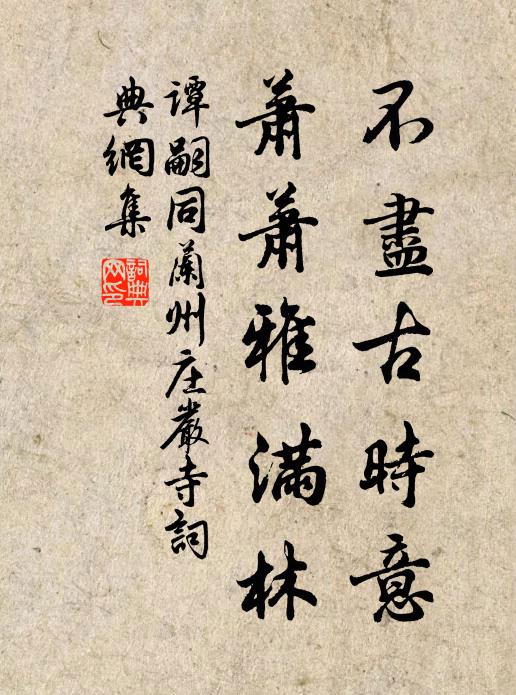 不盡古時意
蕭蕭雅滿林
譚嗣同蘭州庄嚴寺詞
典網集
詞典网印